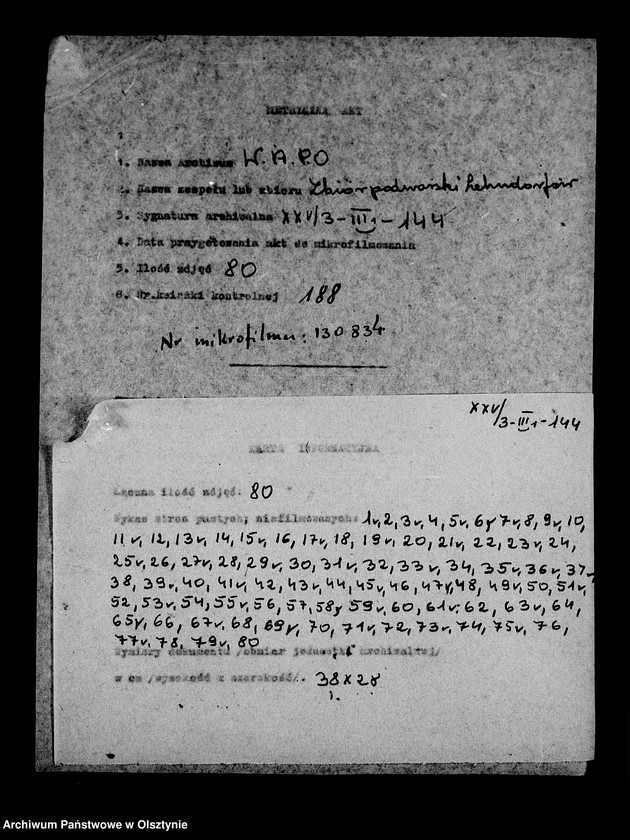 METRYCZKA AKT
1. Nazwa Archiwum W.A.P.O
2. Nazwa zespołu lub zbioru Zbiór podworski Lehndorfów
3. Sygnatura archiwalna XXV/3-III1-144
4. Data przygotowania akt do mikrofilmowania
5. Ilość zdjęć 80
6. Nr.książki kontrolnej 188
Nr mikrofilmu: 130834
XXV/3-III1-144
KARTA INFORMACYJNA
Łączna ilość zdjęć: 80
Wykaz stron pustych, niefilmowanych: 1v, 2, 3v, 4, 5v, 6, 7v, 8, 9v, 10,
11v, 12, 13v, 14, 15v, 16, 17v, 18, 19v, 20, 21v, 22, 23v, 24,
25v, 26, 27v, 28, 29v, 30, 31v, 32, 33v, 34, 35v, 36v, 37-
38, 39v, 40, 41v, 42, 43v, 44, 45v, 46, 47v, 48, 49v, 50, 51v,
52, 53v, 54, 55v, 56, 57, 58, 59v, 60, 61v, 62, 63v, 64,
65v, 66, 67v, 68, 69v, 70, 71v, 72, 73v, 74, 75v, 76,
77v, 78, 79v, 80
Wymiary dokumentu /obmiar jednostki archiwalnej/
w cm /wysokość x szerokość/. 38x28
Archiwum Państwowe w Olsztynie